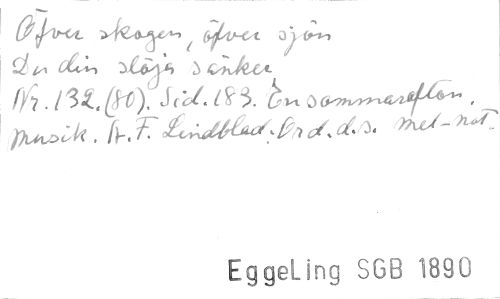 Öfver skogen, öfver sjön
Du din slöja sänker
Nr. 132. (80). Sid. 183. En sommarafton.
Musik. A. F. Lindblad. Ord. d.s. mel-not.
EggeLing SGB 1890